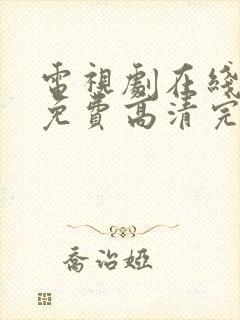 電視劇在綫
免費高清完
喬治婭